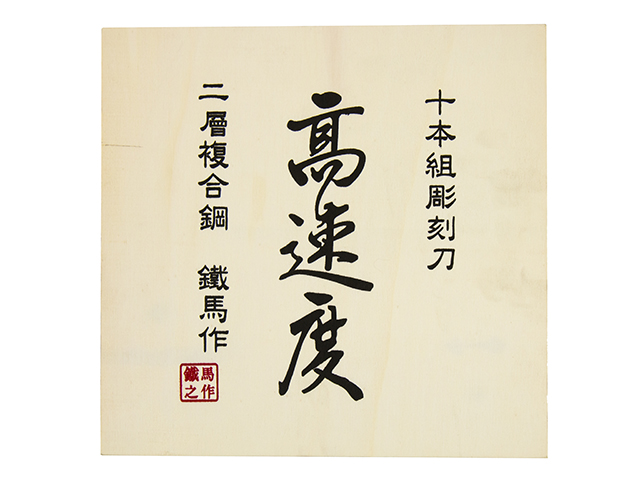 十本組彫刻刀
高速度
二層複合鋼 鐵馬作
鐵馬作之